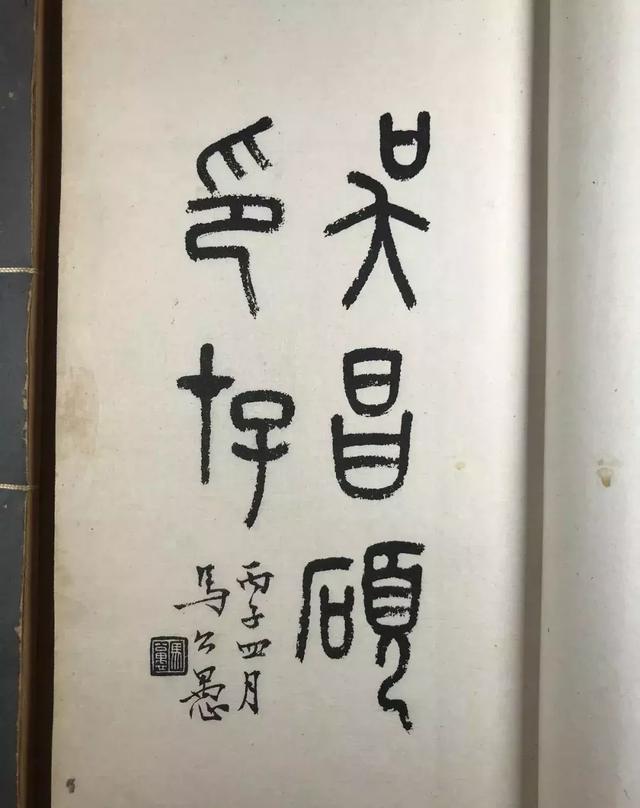 吴昌碩
印存
丙子四月
馬公愚